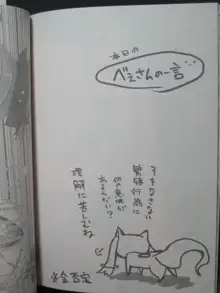 本日の
べぇさんの一言
子をなさない
繁殖行為に
何の意味が
あるんだい?
理解に苦しむね
※全否定